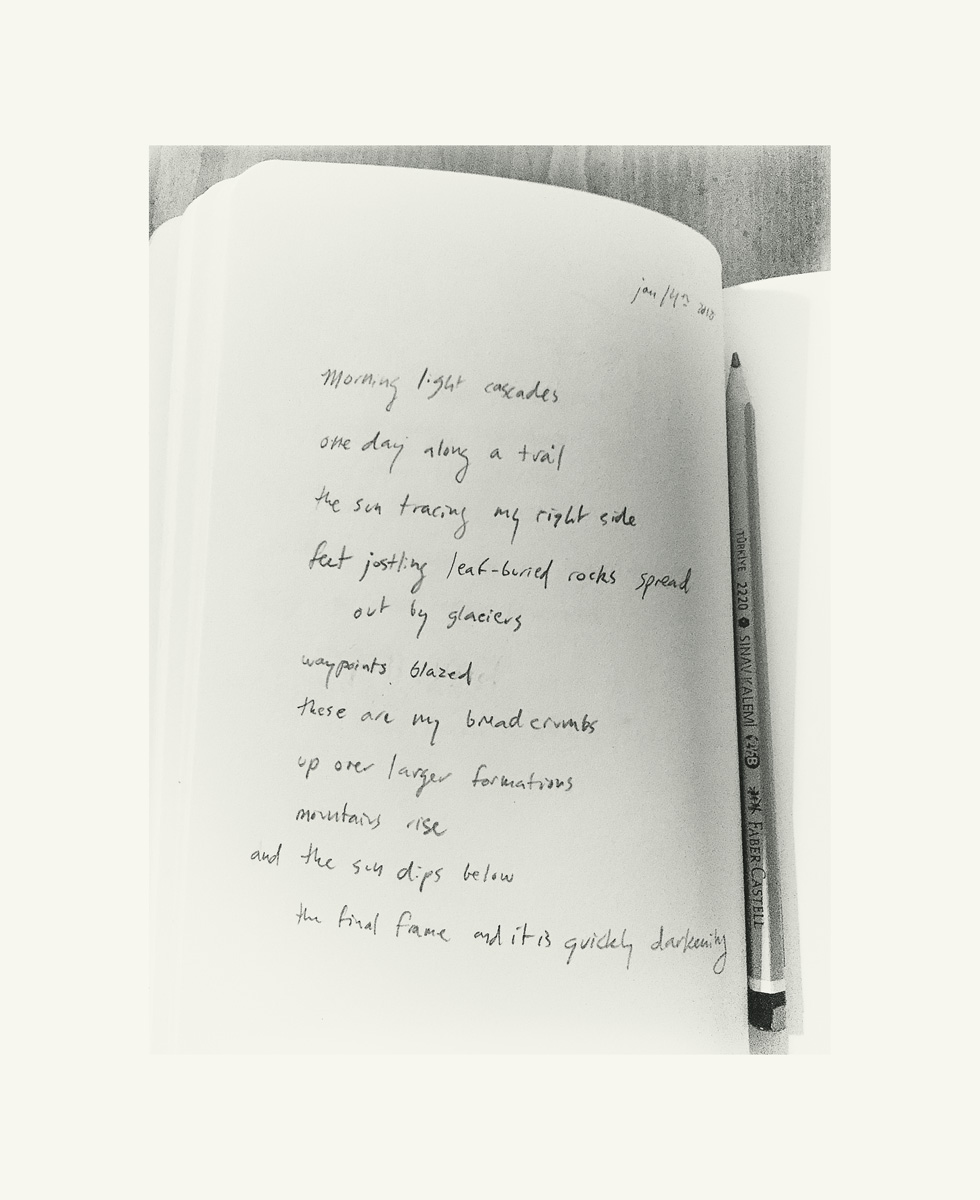 Morning light cascades
one day along a trail
the sun tracing my right side
feet jostling leaf-buried rocks spread
out by glaciers
waypoints blazed
these are my breadcrumbs
up over larger formations
mountains rise
and the sun dips below
the final frame and it is quickly darkening
TÜRKİYE 2220 SINAV KALEMİ 2½B FABER-CASTELL